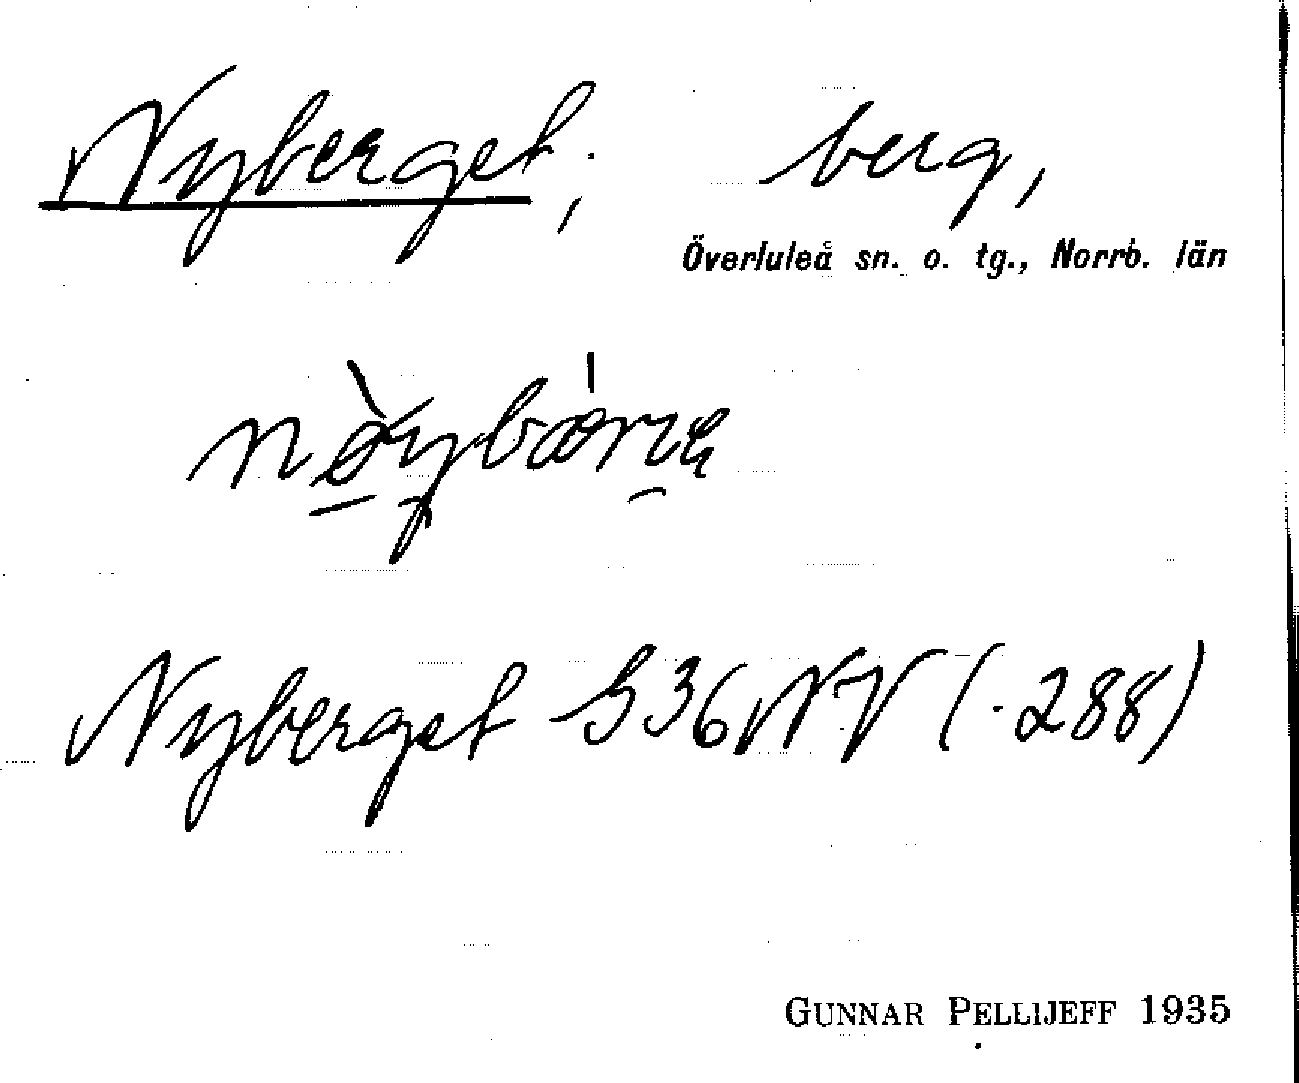 Nyberget; berg,
Överluleå sn. o. tg., Norrb. län
Nyberget S36NV (·288)
GUNNAR PELLIJEFF 1935